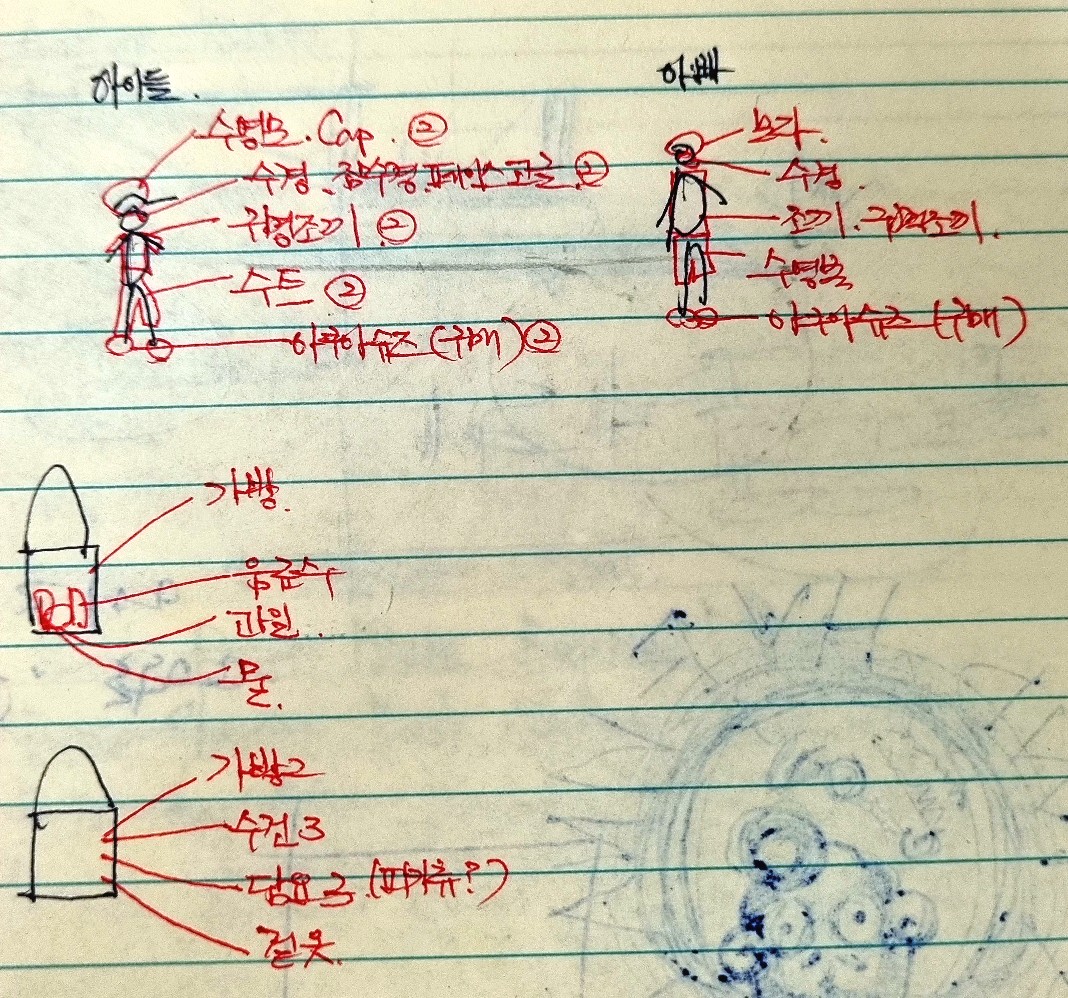 아이들.
수영모. Cap. ②
수경. 잠수경. 페이스고글. ②
구명조끼. ②
수트 ②
아쿠아슈즈 (구매) ②
아빠
모자.
수경.
조끼. 구명조끼.
수영복
아쿠아슈즈 (구매)
가방.
음료수
과일..
물.
가방2
수건 3
담요 3. (파카류?)
겉옷.